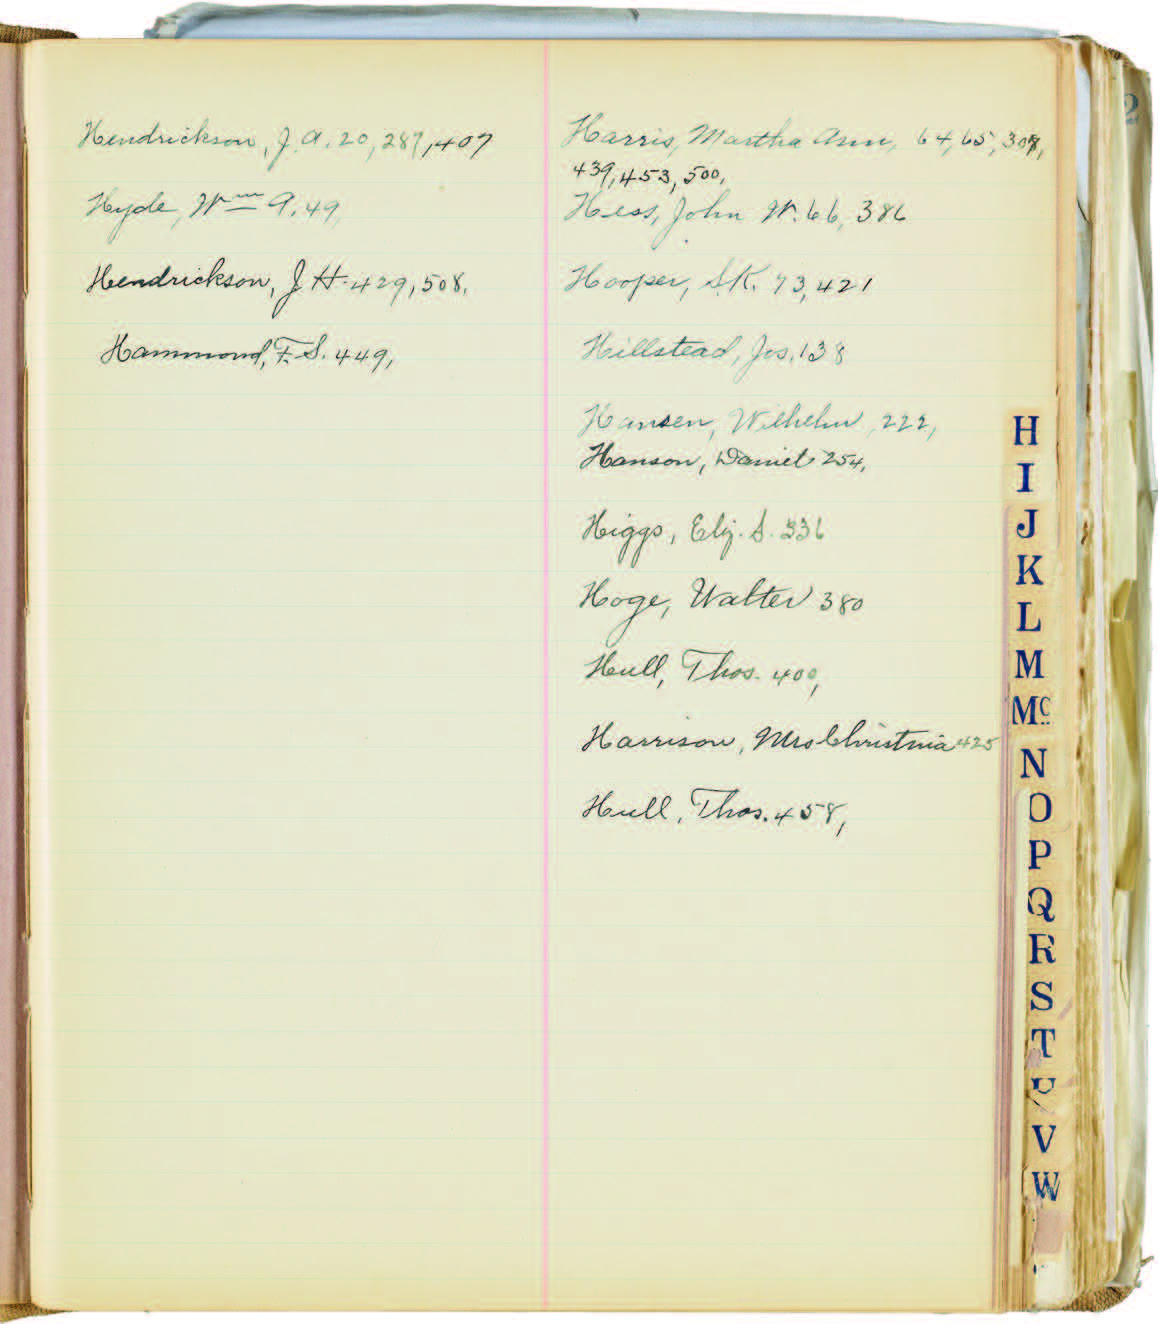 Hendrickson, J. A. 20, 287, 407
Hyde, Wm A. 49,
Hendrickson, J H. 429, 508,
Hammond, F. S. 449,
Harris, Martha Ann, 64, 65, 308,
439, 453, 500,
Hess, John W. 66, 386
Hooper, S.K. 73, 421
Hillstead, Jos. 138
Hansen, Wilhelm, 222,
Hanson, Daniel 254,
Higgs, Eliz. S. 336
Hoge, Walter 380
Hull, Thos. 400,
Harrison, Mrs Christnia 425
Hull, Thos. 458,
H
I
J
K
L
M
Mc
N
O
P
Q
R
S
T
U
V
W
2